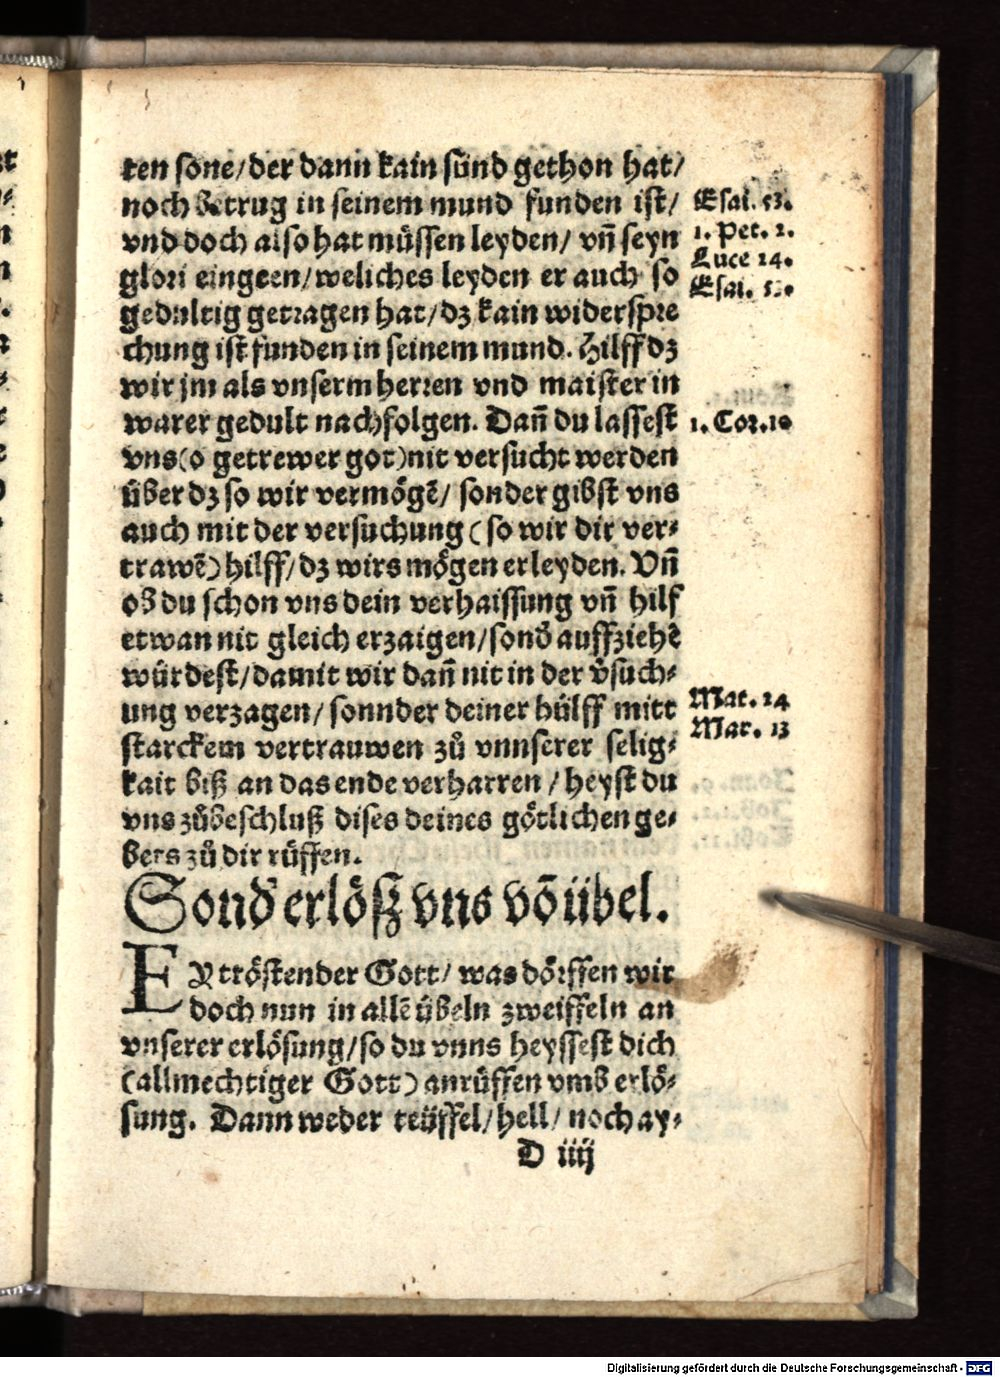 ten sone/der dann kain sünd gethon hat/
noch betrug in seinem mund funden ist/
vnd doch also hat müssen leyden/ vñ seyn
glori eingeen/weliches leyden er auch so
gedultig getragen hat/dz kain widerspre
chung ist funden in seinem mund. Hilff dz
wir jm als vnserm herren vnd maister in
warer gedult nachfolgen. Dañ du lassest
vns(o getrewer got)nit versucht werden
über dz so wir vermögẽ/ sonder gibst vns
auch mit der versuchung (so wir dir ver⸗
trawẽ) hilff/dz wirs mögen erleyden. Vñ
ob du schon vns dein verhaissung vñ hilf
etwan nit gleich erzaigen/sond̃ auffziehẽ
würdest/damit wir dañ nit in der v̈such⸗
ung verzagen/ sonnder deiner hülff mitt
starckem vertrauwen zů vnnserer selig⸗
kait biß an das ende verharren /heyst du
vns zůbeschluß dises deines götlichen ge⸗
bets zů dir rüffen.
Esai. 53.
1. Pet. 2.
Luce 24.
Esai. 53.
1. Cor.10
Mat. 24
Mar. 13
Sond' erlösz vns võ übel.
EY tröstender Gott/ was dörffen wir
doch nun in allẽ übeln zweiffeln an
vnserer erlösung/so du vnns heyssest dich
(allmechtiger Gott) anrüffen vmb erlö⸗
sung. Dann weder teüffel/hell/ noch ay⸗
D iiij
Digitalisierung gefördert durch die Deutsche Forschungsgemeinschaft - DFG